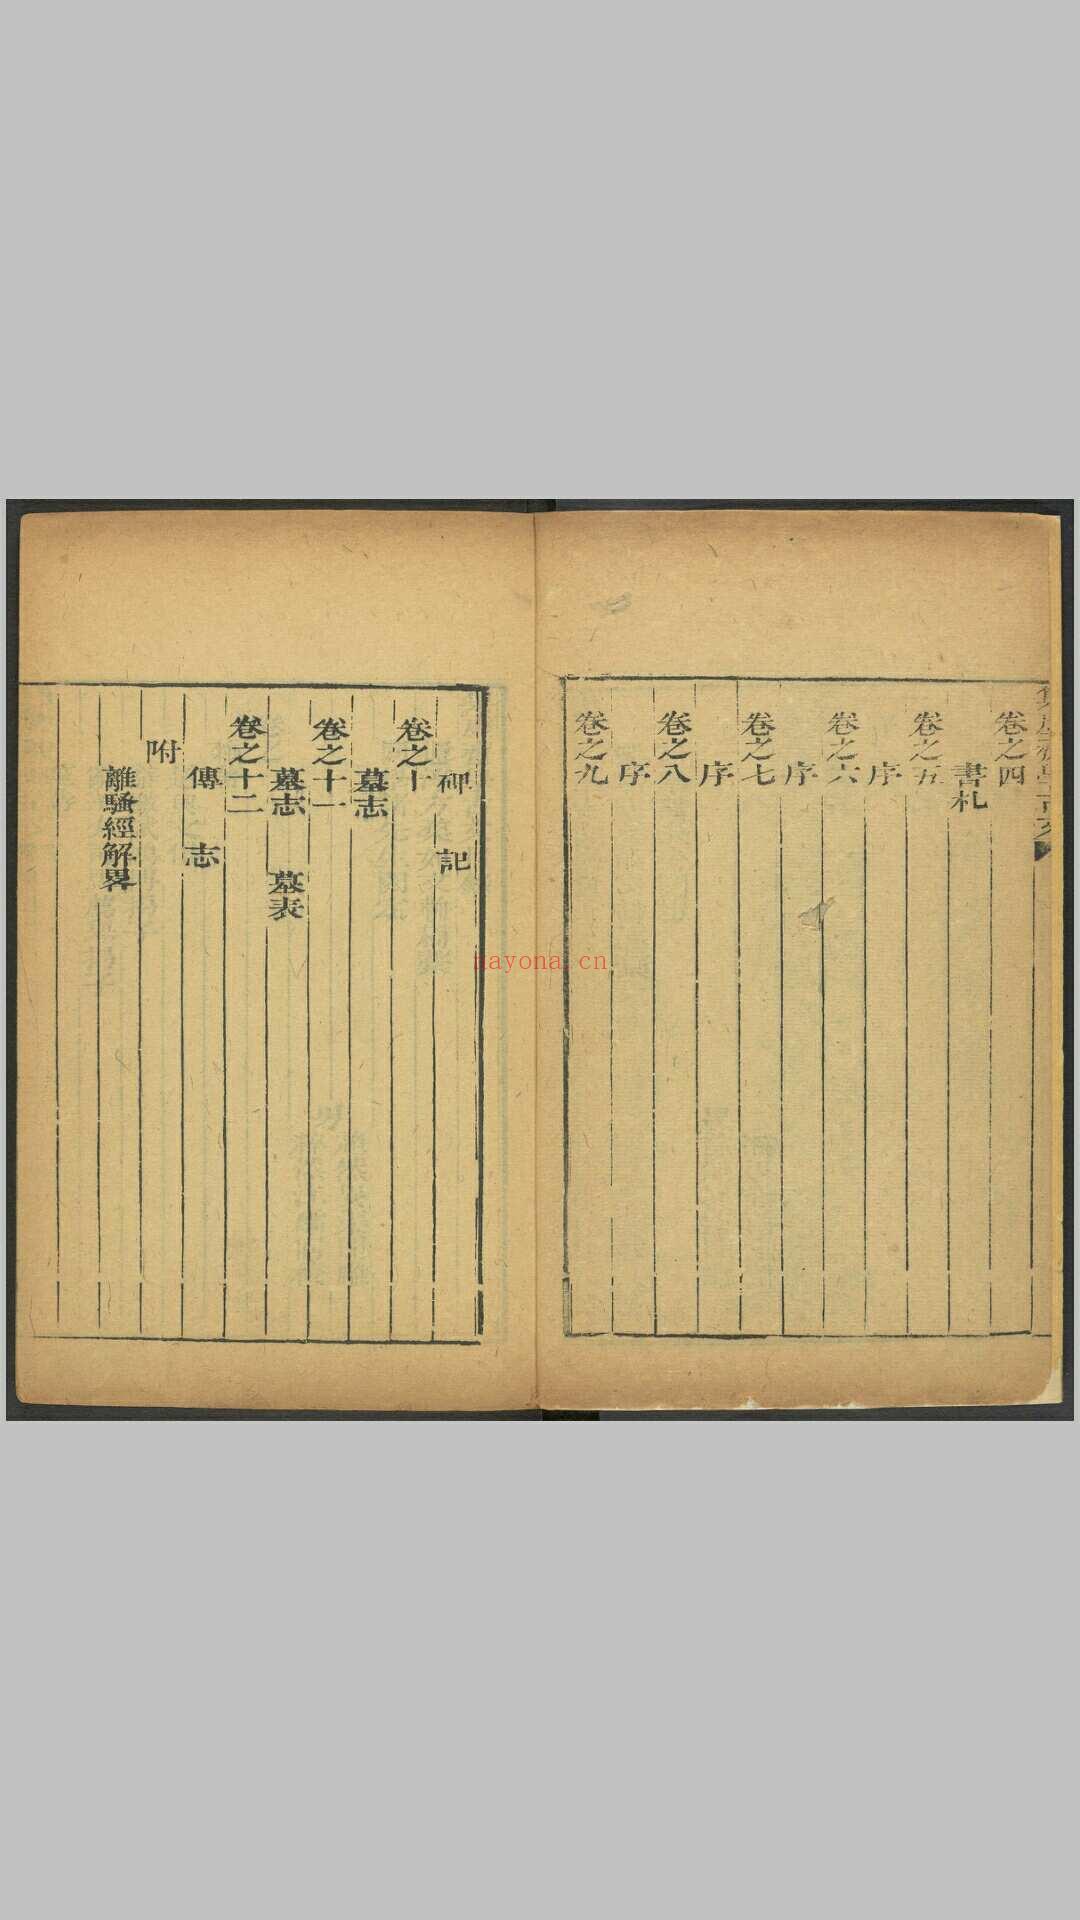 卷之四
書札
卷之五
序
卷之六
序
卷之七
序
卷之八
序
卷之九
碑 記
卷之十
墓志
卷之十一
墓志 墓表
卷之十二
傳 志
附
離騷經解畧
nayona.cn